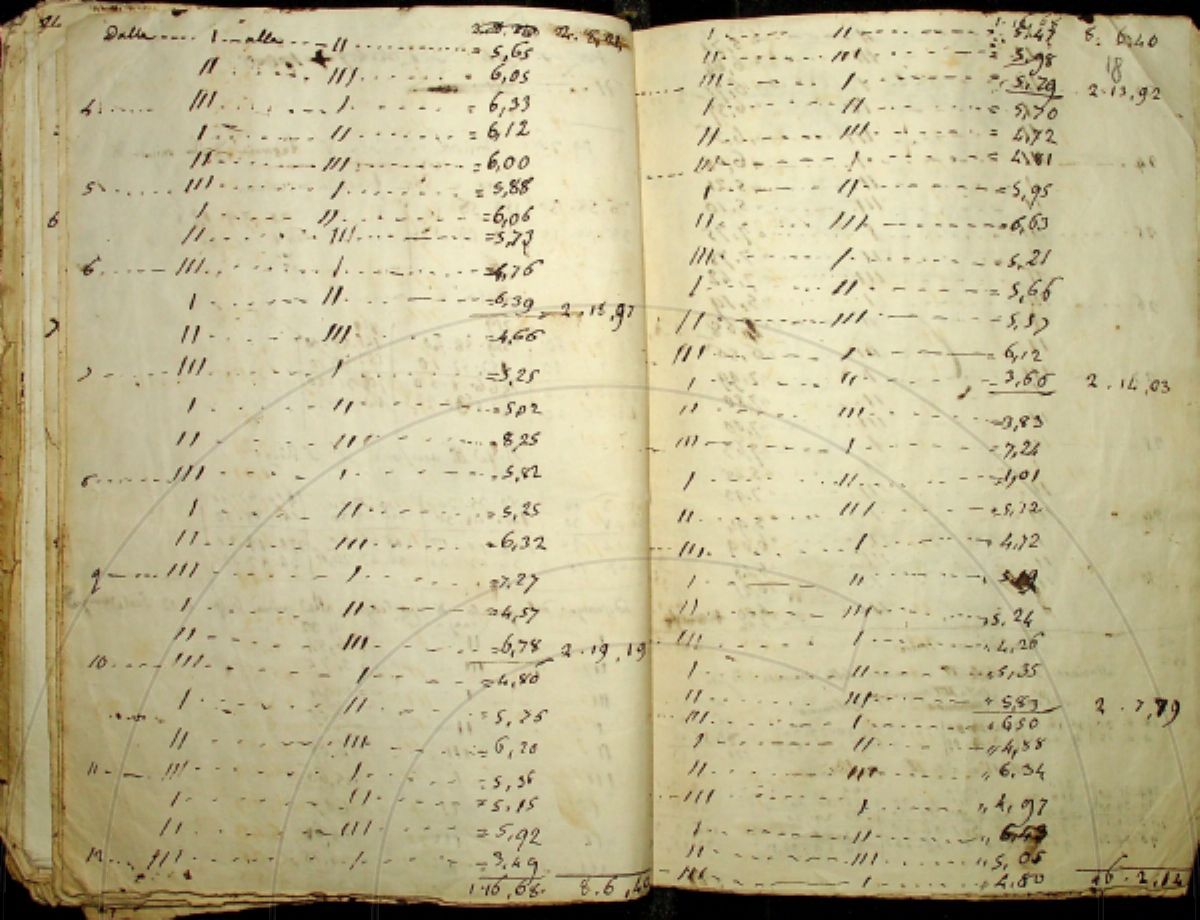 Dalle I alle II = 5,65
II III 6,05
4 III I = 6,33
I II = 6,12
II III = 6,00
5 III I = 5,88
I II = 6,06
II III = 5,73
6 III I = 4,76
I II = 6,39 = 2.18,97
II III = 4,66
7 III I = 5,25
I II = 5,02
II III = 8,25
III I = 5,82
I II = 5,25
II III = 6,32
9 III I = 7,27
I II = 4,57
II III = 6,78 2.19,19
10 III I = 4,80
I II = 5,75
II III = 6,20
11 III I = 5,36
I II = 5,15
II III = 5,92
12 III I = 3,49
1.16,68 8.6,40
I II = 5,47 8.6,40
18
II III = 5,98
III I = 5,29 2.13,92
I II = 5,70
II III = 4,72
III I = 4,81
I II = 5,95
II III = 6,63
III I = 5,21
I II = 5,66
II III = 5,57
III I = 6,12
I II = 3,66 2.14,03
II III = 3,83
III I = 7,24
I II = 4,01
II III = 5,72
III I 4,72
I II
II III 5,24
III I 4,26
I II 5,35
II III 5,83 2.7,79
III I 6,50
I II 4,88
II III 6,34
III I 4,97
I II 6,43
II III 5,05
III I 4,80 16.2,14